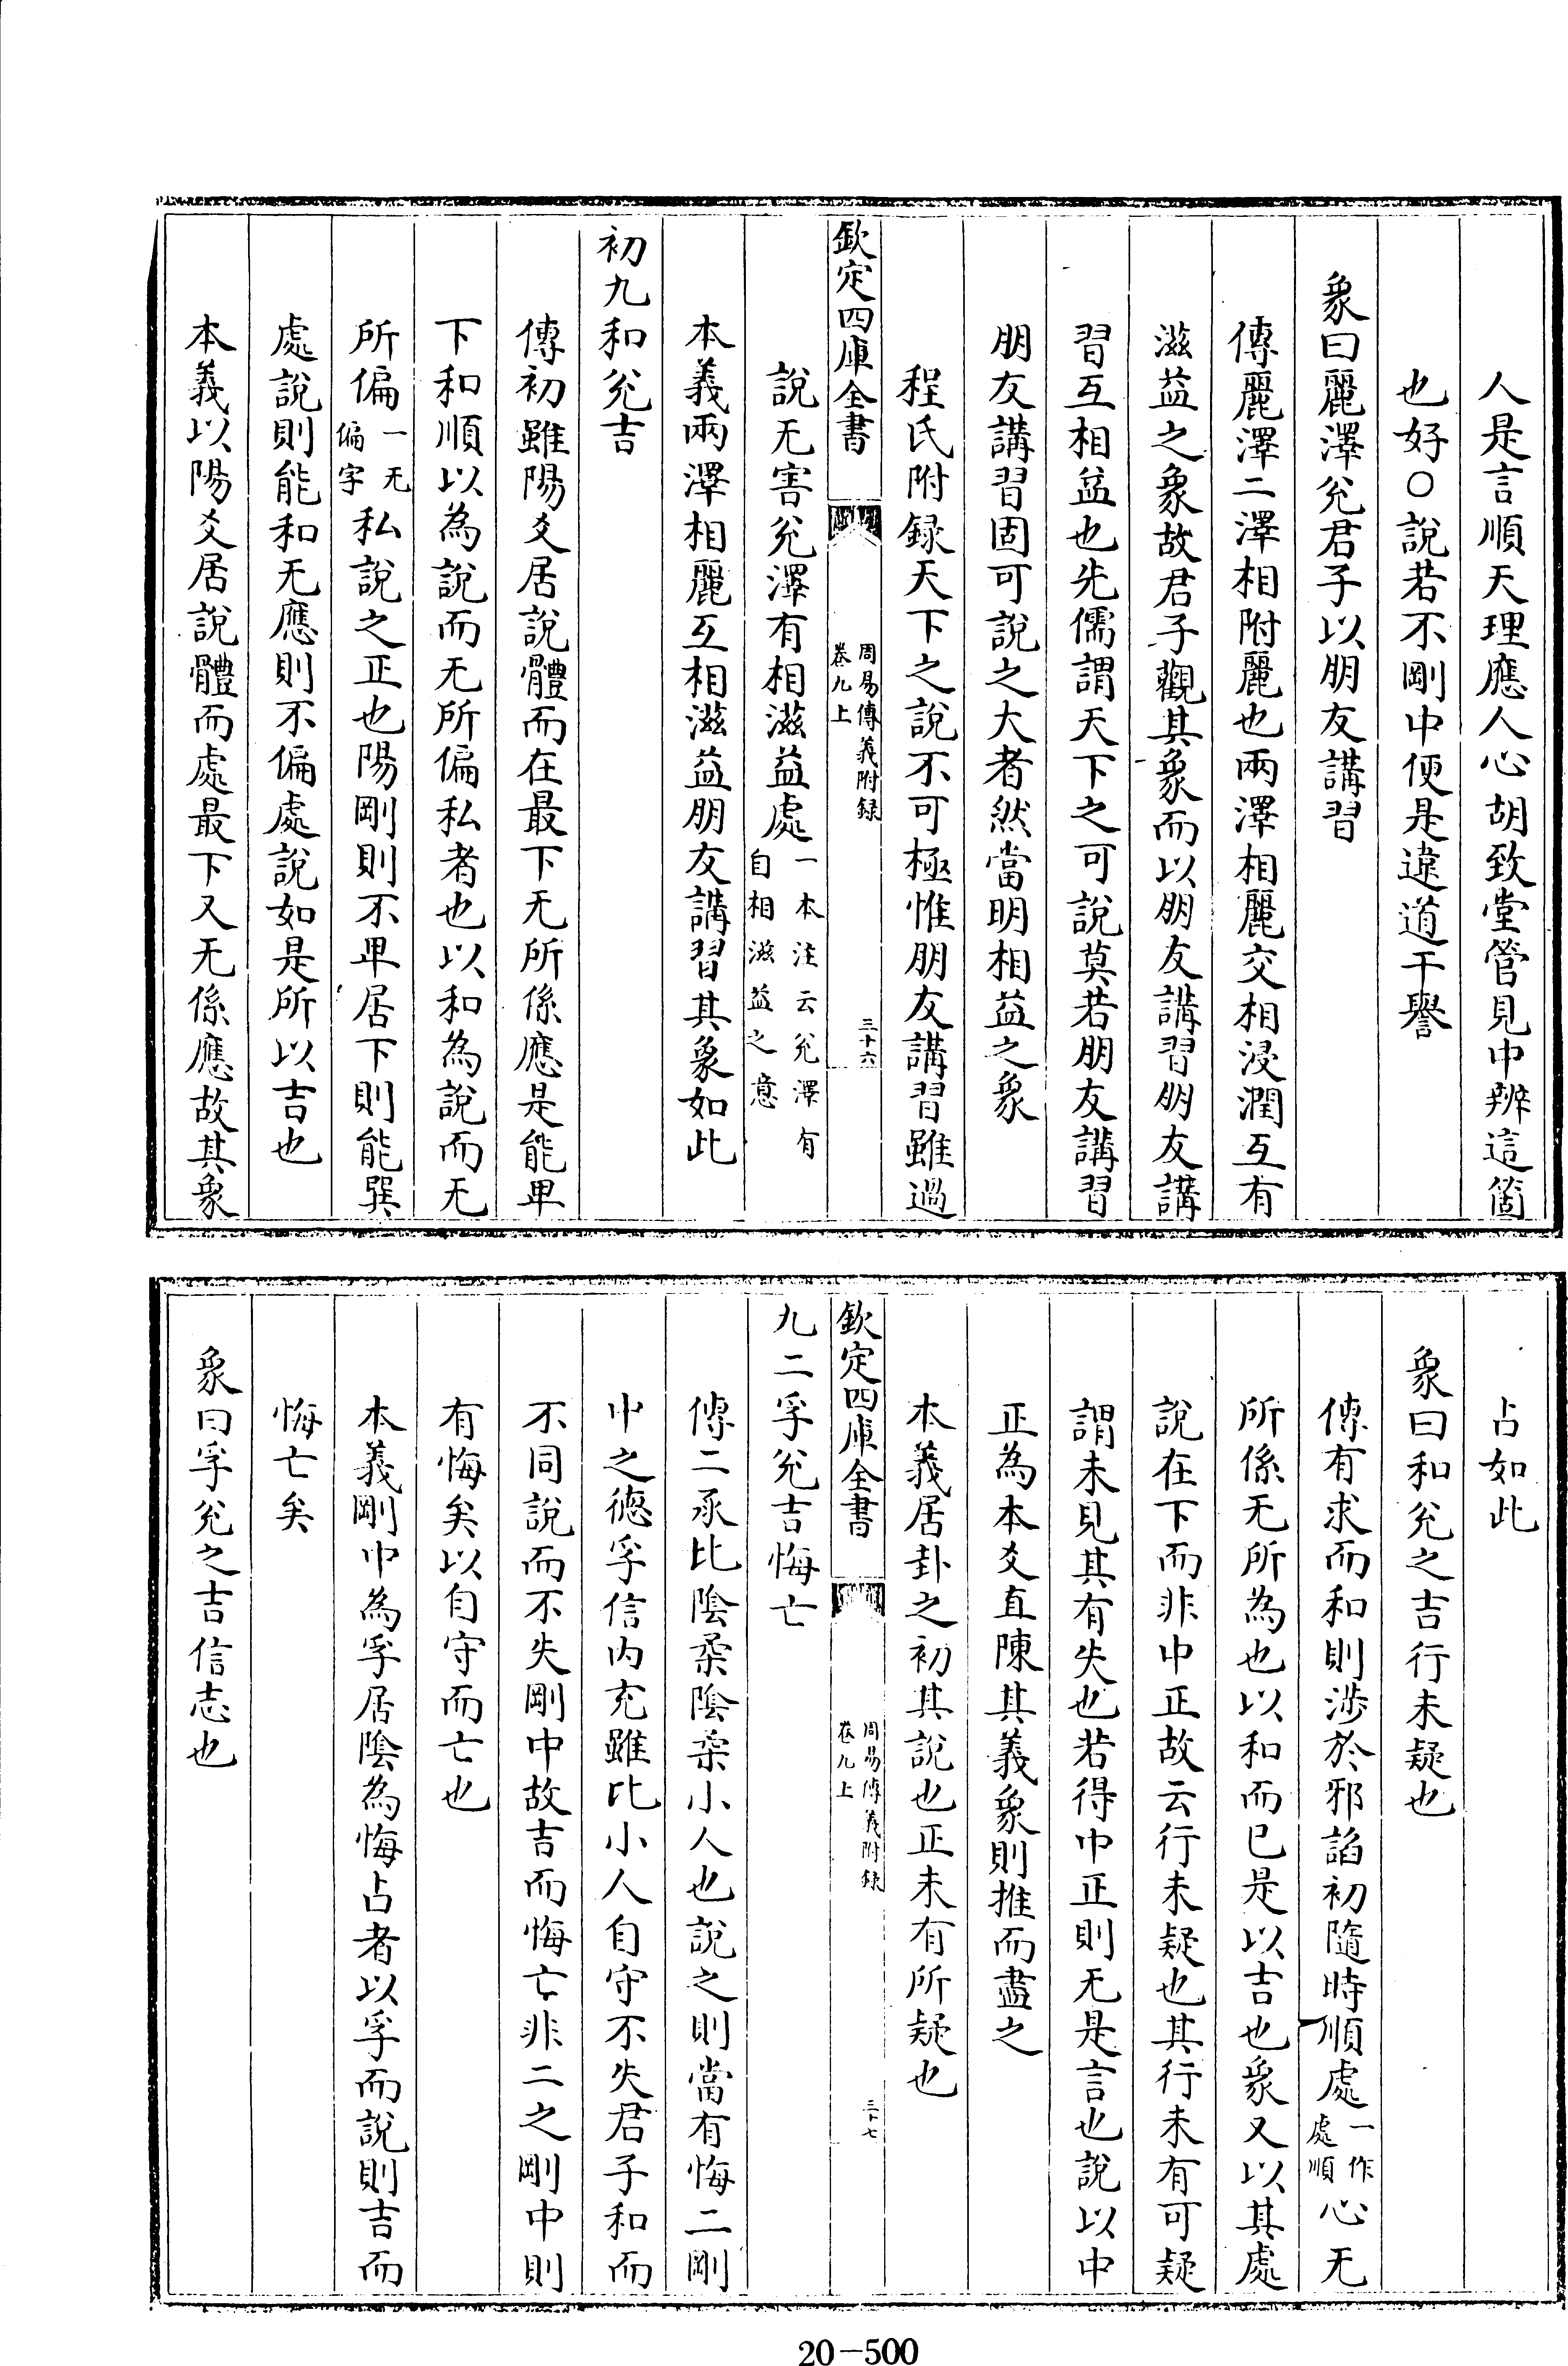 人是言順天理應人心胡致堂管見中辨這箇
也好○說若不剛中便是違道干譽
象曰麗澤兌君子以朋友講習
傳麗澤二澤相附麗也兩澤相麗交相浸潤互有
滋益之象故君子觀其象而以朋友講習朋友講
習互相益也先儒謂天下之可說莫若朋友講習
朋友講習固可說之大者然當明相益之象
程氏附録天下之說不可極惟朋友講習雖過
欽定四庫全書
周易傳義附録
卷九上
三十六
說无害兌澤有相滋益處一本注云兌澤有自相滋益之意
本義兩澤相麗互相滋益朋友講習其象如此
初九和兌吉
傳初雖陽爻居說體而在最下无所係應是能卑
下和順以為說而无所偏私者也以和為說而无
所偏一无偏字私說之正也陽剛則不卑居下則能巽
處說則能和无應則不偏處說如是所以吉也
本義以陽爻居說體而處最下又无係應故其象
占如此
象曰和兌之吉行未疑也
傳有求而和則涉於邪諂初隨時順處一作處順心无
所係无所為也以和而已是以吉也象又以其處
說在下而非中正故云行未疑也其行未有可疑
謂未見其有失也若得中正則无是言也說以中
正為本爻直陳其義象則推而盡之
本義居卦之初其說也正未有所疑也
欽定四庫全書
周易傳義附録
卷九上
三十七
九二孚兌吉悔亡
傳二承比陰柔陰柔小人也說之則當有悔二剛
中之德孚信內充雖比小人自守不失君子和而
不同說而不失剛中故吉而悔亡非二之剛中則
有悔矣以自守而亡也
本義剛中為孚居陰為悔占者以孚而說則吉而
悔亡矣
象曰孚兌之吉信志也
20-500